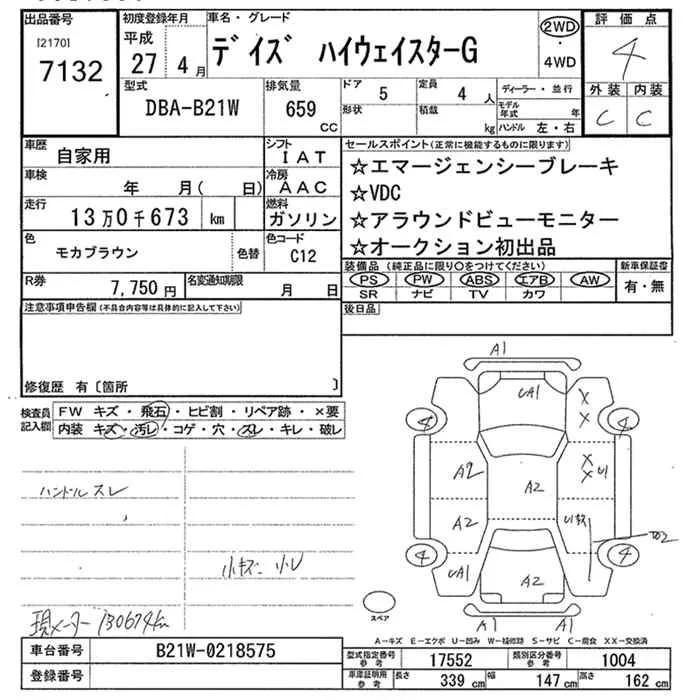 出品番号
[2170]
7132
初度登録年月
平成
27 4 月
車名・グレード
デイズ ハイウェイスターG
2WD
・
4WD
評価点
4
外装 内装
C C
型式
DBA-B21W
排気量
659
cc
ドア 5
定員 4 人
形状
積載 kg
ディーラー・並行
モデル年式 年
ハンドル 左・右
車歴
自家用
シフト
IAT
車検
年 月( 日)
冷房
AAC
走行
13万0千673 km
燃料
ガソリン
色
モカブラウン
色替
色コード
C12
R券
7,750 円
名変通知期限
月 日
セールスポイント(正常に機能するものに限ります)
☆エマージェンシーブレーキ
☆VDC
☆アラウンドビューモニター
☆オークション初出品
装備品 (純正品に限り○をつけてください)
PS PW ABS エアB AW
SR ナビ TV カワ
新車保証書
有・無
後日品
注意事項申告欄(不具合内容等は具体的に記入して下さい)
修復歴 有〔箇所 〕
検査員
記入欄
FW キズ・飛石・ヒビ割・リペア跡・×要
内装 キズ・汚レ・コゲ・穴・スレ・キレ・破レ
ハンドルスレ
小キズ 小レ
現メーター 130674km
A1
UA1
X
X
4
4
A2
X
X
U1
A2
A2
4
4
UA1
A2
A1
A1
スペア
A-キズ E-エクボ U-凹み W-補修跡 S-サビ C-腐食 XX-交換済
車台番号
B21W-0218575
登録番号
型式指定番号
参考
17552
類別区分番号
参考
1004
車庫証明用
参考
長さ 339 cm
幅 147 cm
高さ 162 cm